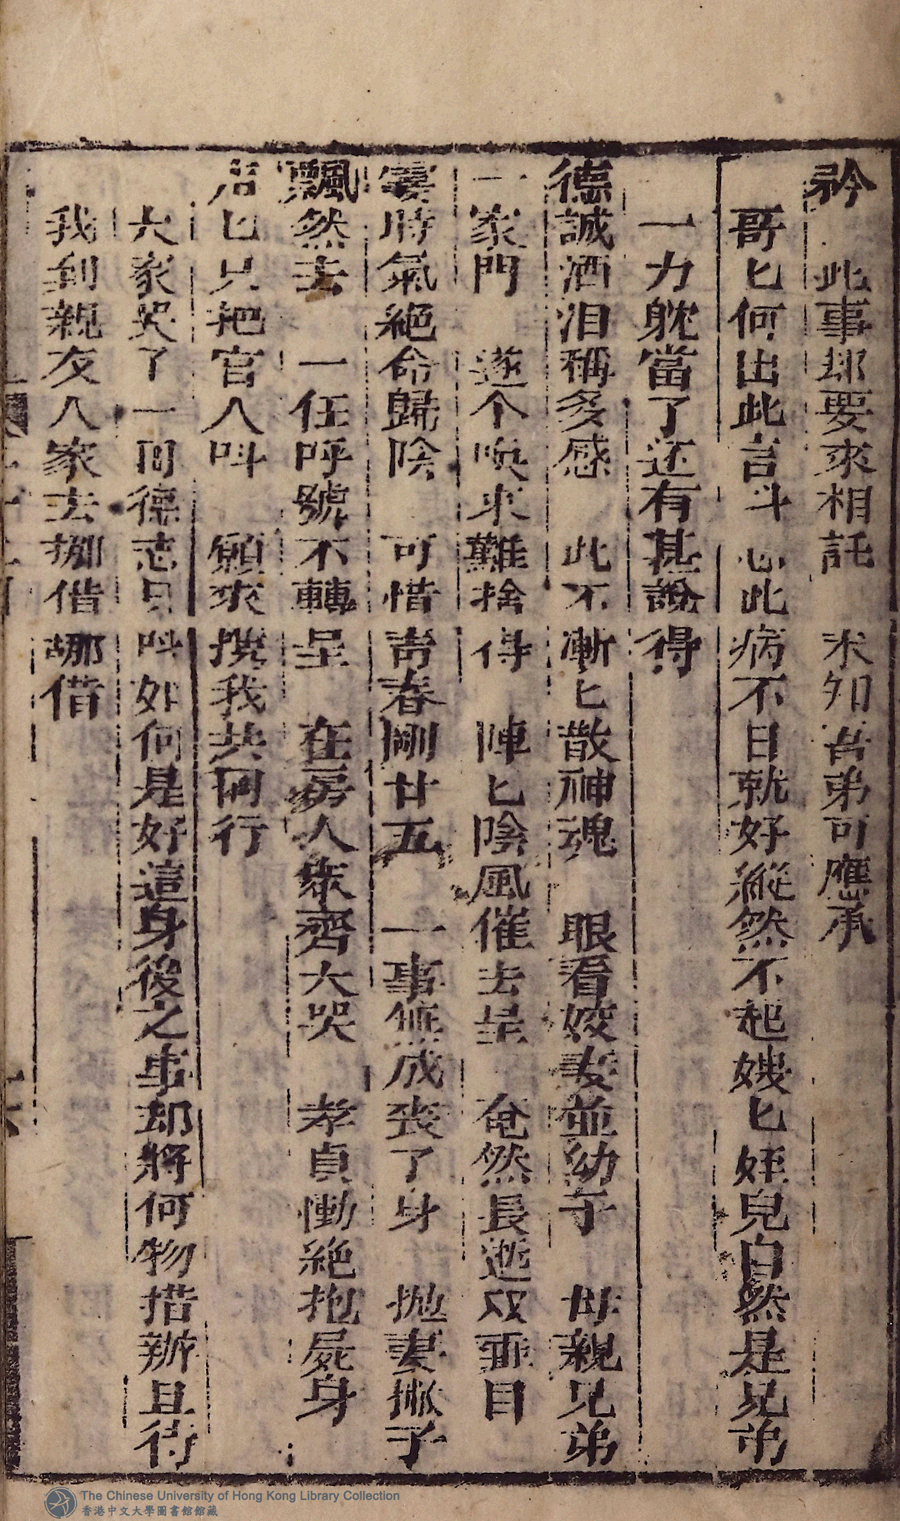 矜　此事却要來相託　未知吾弟可應承
哥匕何出此言斗心此病不日就好縱然不起嫂匕姪兒自然是兄弟
一力躭當了还有甚說得
德誠洒泪稱多感　此不漸匕散神魂　眼看姣妻並幼子　母親兄弟
一家門　逐个喚來難捨得　陣匕陰風催去呈　奄然長逝双垂目
霎時氣絕命歸陰　可惜青春剛廿五　一事無成丧了身　抛妻撇子
飄然去　一任呼號不轉呈　在房人衆齊大哭　孝貞慟絕抱屍身
声匕只把官人呌　願來携我共同行
大家哭了一回德志只呌如何是好這身後之事却將何物措辦且待
我到親友人家去挪借挪借
The Chinese University of Hong Kong Library Collection
香港中文大學圖書館館藏